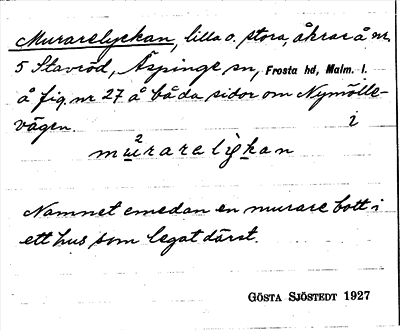 Murarelyckan, lilla o. stora, åkrar å nr
5 Stavröd, Äspinge sn, Frosta hd, Malm. l.
å fig. nr 27 å båda sidor om Nymölle-
vägen.
Namnet emedan en murare bott i
ett hus som legat därst.
GÖSTA SJÖSTEDT 1927